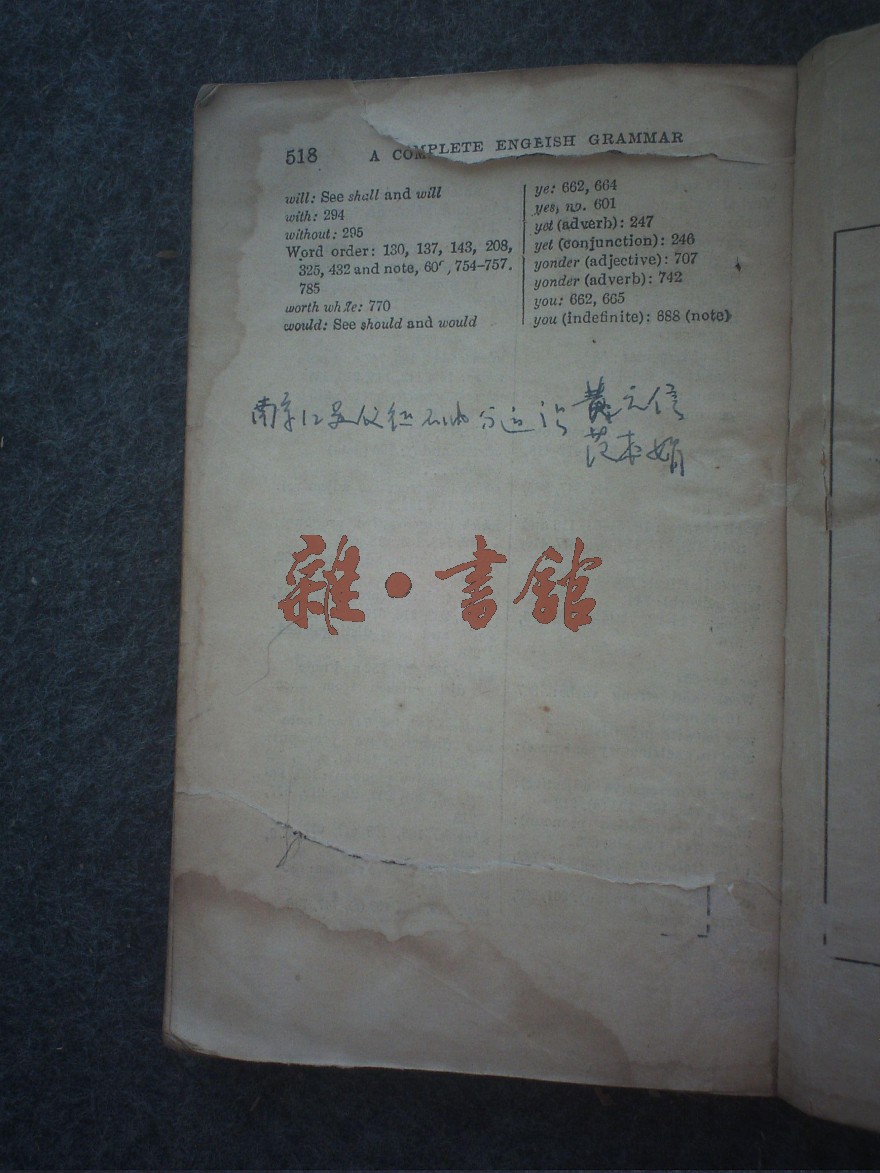 518 A COMPLETE ENGLISH GRAMMAR
will: See shall and will
with: 294
without: 295
Word order: 130, 137, 143, 208,
325, 432 and note, 754–757.
785
worth while: 770
would: See should and would
ye: 662, 664
yes, no. 601
yet (adverb): 247
yet (conjunction): 246
yonder (adjective): 707
yonder (adverb): 742
you: 662, 665
you (indefinite): 688 (note)
南京
黄元信
范本娟
雜·書館